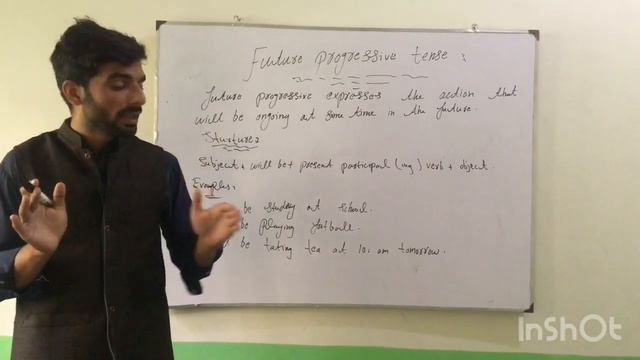 Future progressive tense :
future progressive expresses the action that
will be ongoing at some time in the future.
Sturture:
Subject + will be + present participal (ing) verb + object.
Examples:
be studing at school.
be playing football.
be taking tea at 10: am tomorrow.
InShOt